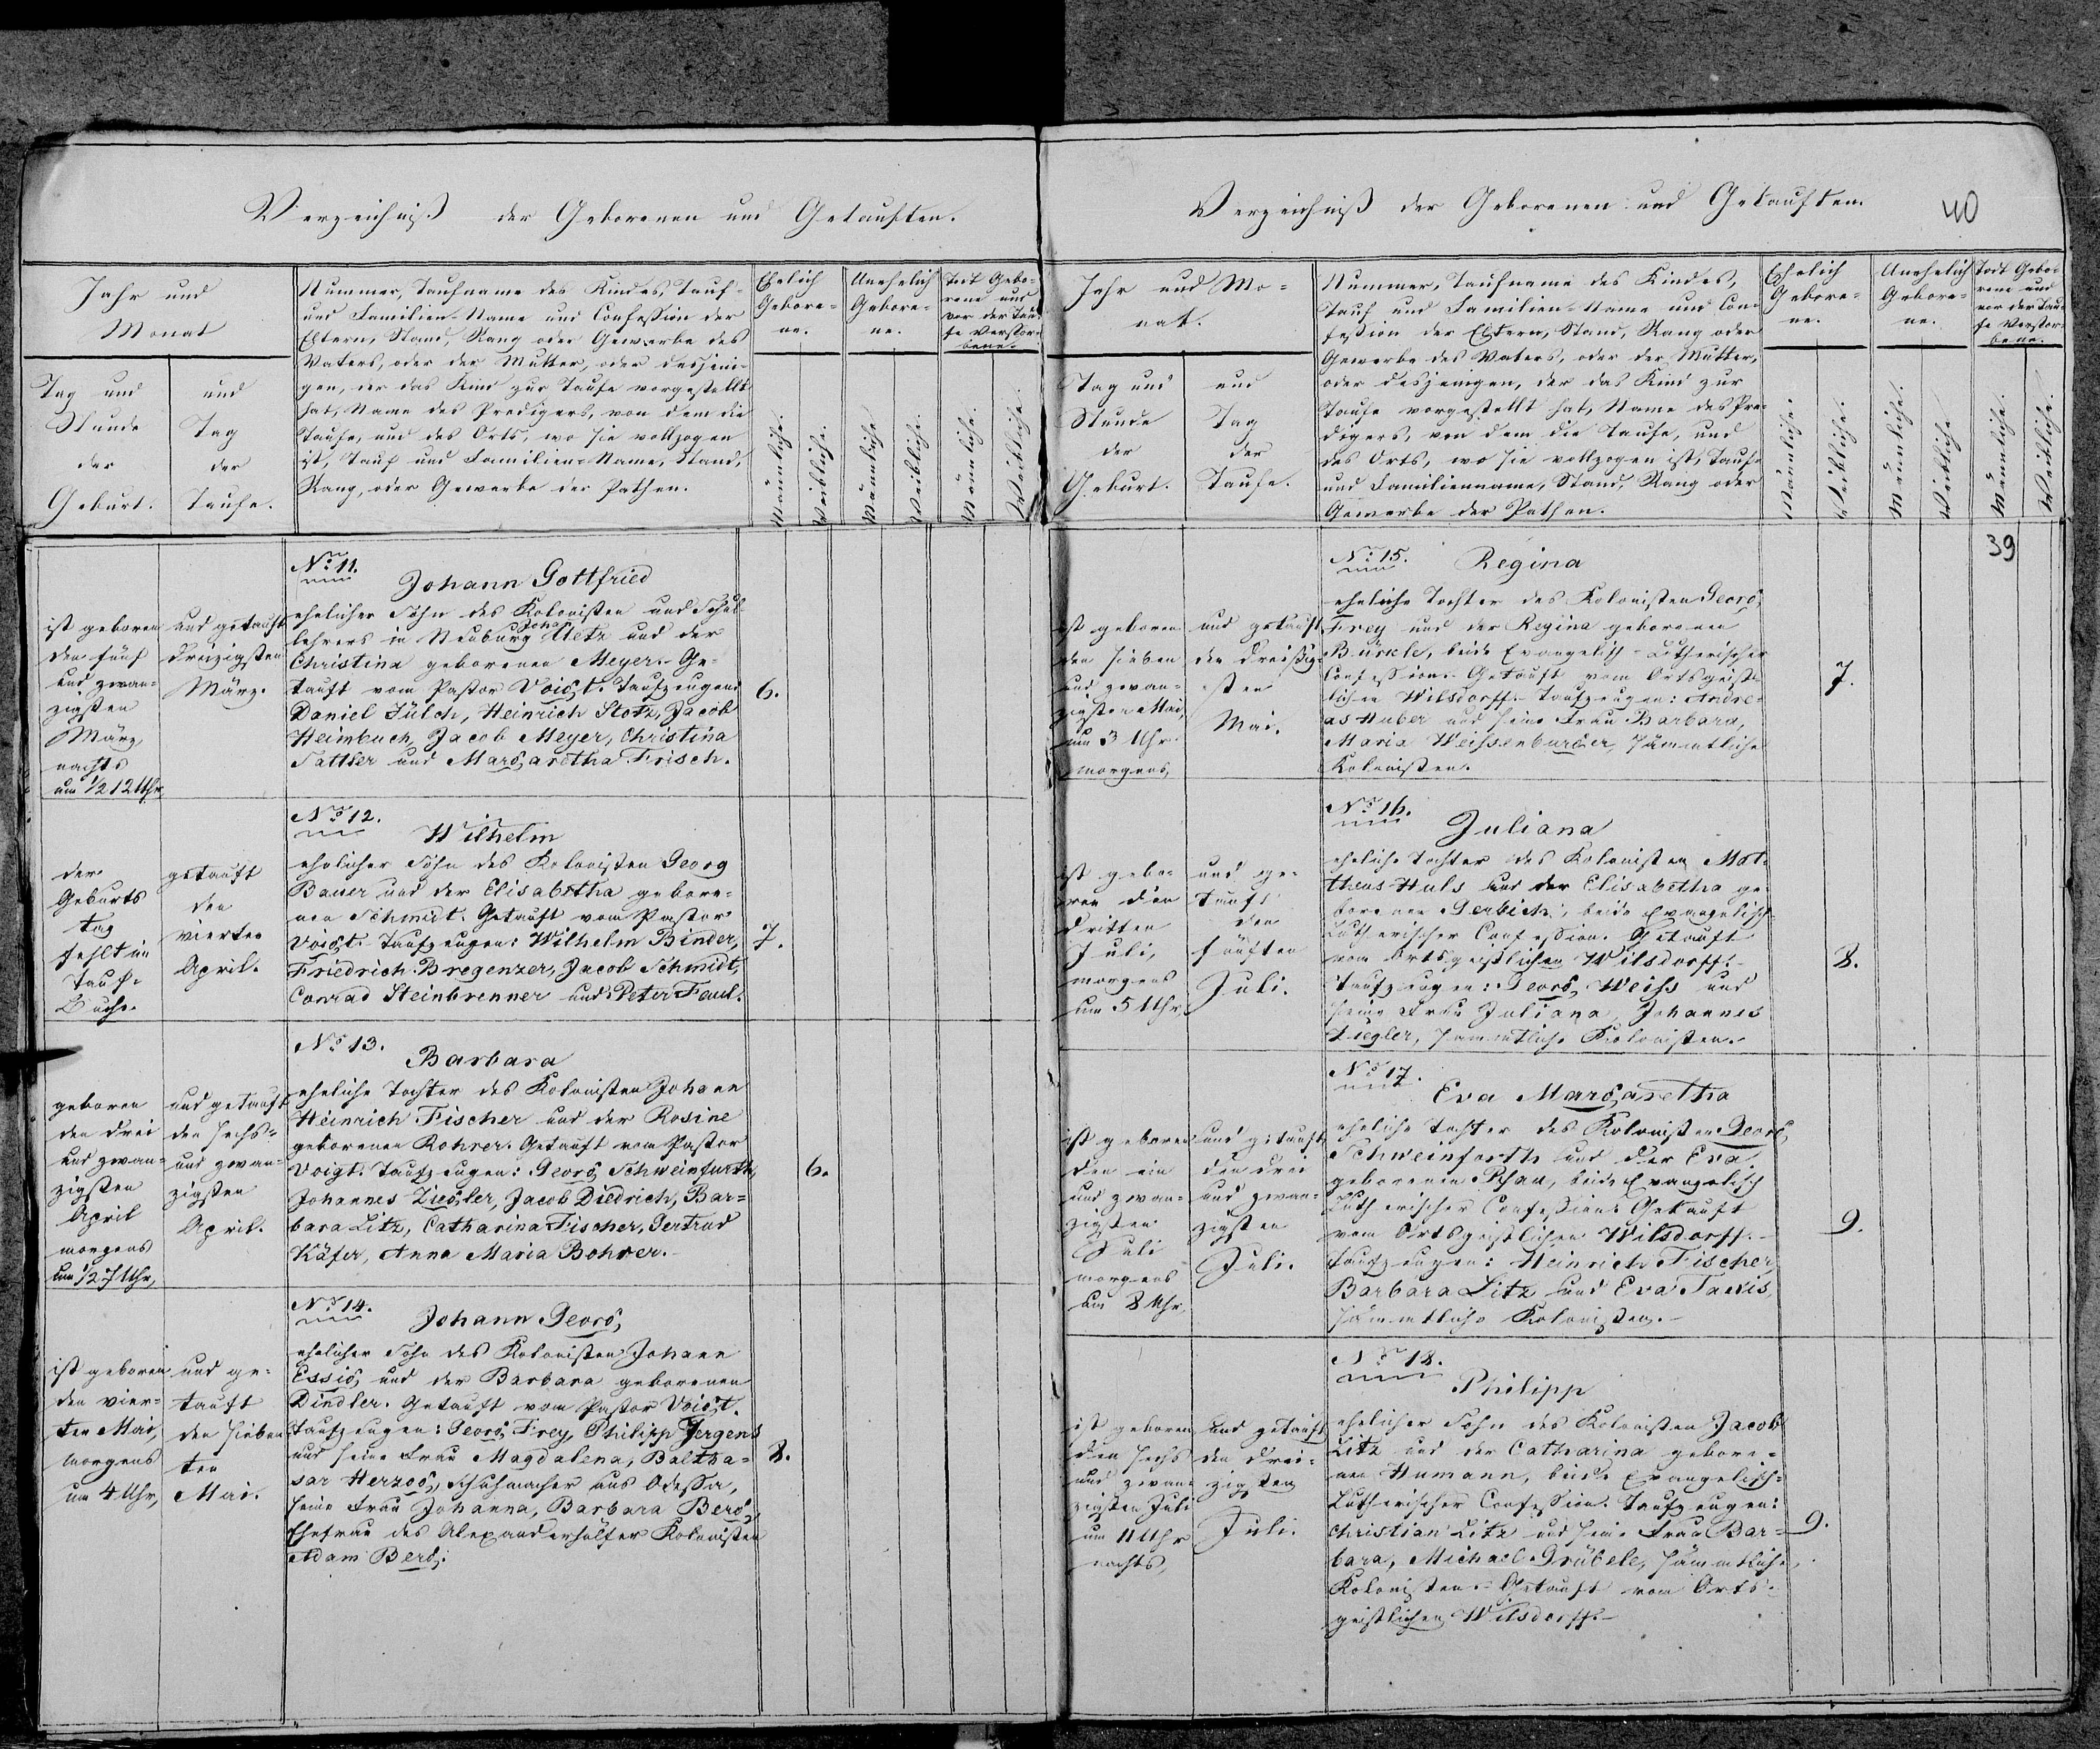 Verzeichniß der Geborenen und Getauften.
Jahr und
Monat
Tag und
Stunde
der
Geburt.
und
Tag
der
Taufe.
Nummer, Taufname des Kindes, Tauf-
und Familien-Name und Confession der
Eltern, Stand, Rang oder Gewerbe des
Vaters, oder der Mutter, oder desjeni-
gen, der das Kind zur Taufe vorgestellt
hat, Name des Predigers, von dem die
Taufe, und des Orts, wo sie vollzogen
ist, Tauf und Familien-Name, Stand,
Rang, oder Gewerbe der Pathen.
Ehelich
Gebore-
ne.
Unehelich
Gebore-
ne.
Todt Gebo-
rene und
vor der Tau-
fe Verstor-
bene.
Männliche.
Weibliche.
Männliche
Weibliche.
Männliche.
Weibliche.
ist geboren
den fünf
und zwan-
zigsten
März,
nachts
um 1/2 12 Uhr,
und getauft
dreizigsten
März.
No 11.
Johann Gottfried
ehelicher Sohn des Kolonisten und Schul-
lehrers in Neuburg Johann Uetz und der
Christina geborenen Meyer. Ge-
tauft vom Pastor Voigt. Taufzeugen:
Daniel Jülch, Heinrich Stotz, Jacob
Heimbuch, Jacob Meyer, Christina
Sattler und Margaretha Frisch.
6.
der
Geburts
tag
fehlt im
Tauf-
Buche.
getauft
den
vierten
April.
No 12.
Wilhelm
ehelicher Sohn des Kolonisten Georg
Bauer und der Elisabetha gebore-
nen Schmidt. Getauft vom Pastor
Voigt. Taufzeugen: Wilhelm Binder,
Friedrich Bregenzer, Jacob Schmidt,
Conrad Steinbrenner und Peter Faul.
7.
geboren
den drei
und zwan-
zigsten
April
morgens
um 1/2 7 Uhr,
und getauft
den sechs-
und zwan-
zigsten
April.
No 13.
Barbara
eheliche Tochter des Kolonisten Johann
Heinrich Fischer und der Rosine
geborenen Rohrer. Getauft vom Pastor
Voigt. Taufzeugen: Georg Schweinfurth,
Johannes Ziegler, Jacob Diedrich, Bar-
bara Litz, Catharina Fischer, Gertrud
Käfer, Anna Maria Bohrer.
6.
ist geboren
den vier-
ten Mai,
morgens
um 4 Uhr,
und ge-
tauft
den sieben
ten
Mai.
No 14.
Johann Georg,
ehelicher Sohn des Kolonisten Johann
Essig und der Barbara geborenen
Dindler. Getauft vom Pastor Voigt.
Taufzeugen: Georg Frey, Philipp Jergens
und seine Frau Magdalena, Baltha-
sar Herzog, Schuhmacher aus Odessa,
seine Frau Johanna, Barbara Berg,
Ehefrau des Alexanderhülfer Kolonisten
Adam Berg.
8.
Verzeichniß der Geborenen und Getauften.
40
Jahr und Mo-
nat.
Tag und
Stunde
der
Geburt.
und
Tag
der
Taufe.
Nummer, Taufname des Kindes,
Tauf und Familien-Name und Con-
fession der Eltern, Stand, Rang oder
Gewerbe des Vaters, oder der Mutter,
oder desjenigen, der das Kind zur
Taufe vorgestellt hat, Name des Pre-
digers, von dem die Taufe, und
des Orts, wo sie vollzogen ist, Tauf-
und Familienname, Stand, Rang oder
Gewerbe der Pathen.
Ehelich
Gebore-
ne.
Unehelich
Gebore-
ne.
Todt Gebo-
rene und
vor der Tau-
fe Verstor-
bene.
Männliche.
Weibliche.
Männliche.
Weibliche
Männliche.
Weibliche.
39
ist geboren
den sieben
und zwan-
zigsten Mai,
um 3 Uhr
morgens,
und getauft
den dreißig-
sten
Mai.
No 15.
Regina
eheliche Tochter des Kolonisten Georg
Frey und der Regina geborenen
Bürkle, beide Evangelisch-Lutherischer
Confession. Getauft vom Ortsgeist-
lichen Wilsdorff. Taufzeugen: Andre-
as Huber und seine Frau Barbara,
Maria Weissenburger, sämmtliche
Kolonisten.
7.
ist gebo-
ren den
dritten
Juli,
morgens
um 5 Uhr,
und ge-
tauft
den
fünften
Juli.
No 16.
Juliana
eheliche Tochter des Kolonisten Mat-
theus Huls und der Elisabetha ge-
borenen Gerbich, beide Evangelisch
Lutherischer Confession. Getauft
vom Ortsgeistlichen Wilsdorff.
Taufzeugen: Georg Weiss und
seine Frau Juliana, Johannes
Ziegler, sämmtliche Kolonisten.
8.
ist geboren
den ein
und zwan-
zigsten
Juli
morgens
um 8 Uhr,
und getauft
den drei
und zwan-
zigsten
Juli.
No 17.
Eva Margaretha
eheliche Tochter des Kolonisten Georg
Schweinforth und der Eva
geborenen Pfau, beide Evangelisch
Lutherischer Confession. Getauft
vom Ortsgeistlichen Wilsdorff.
Taufzeugen: Heinrich Fischer,
Barbara Litz und Eva
sämmtliche Kolonisten.
9.
ist geboren
den sechs
und zwan-
zigsten Juli
um 11 Uhr
nachts,
und getauft
den drei-
zigsten
Juli.
No 18.
Philipp
ehelicher Sohn des Kolonisten Jacob
Litz und der Catharina gebore-
nen Humann, beide Evangelisch-
Lutherischer Confession. Taufzeugen:
Christian Litz und seine Frau Bar-
bara, Michael Grübele, sämmtliche
Kolonisten. Getauft vom Orts-
geistlichen Wilsdorff.
9.